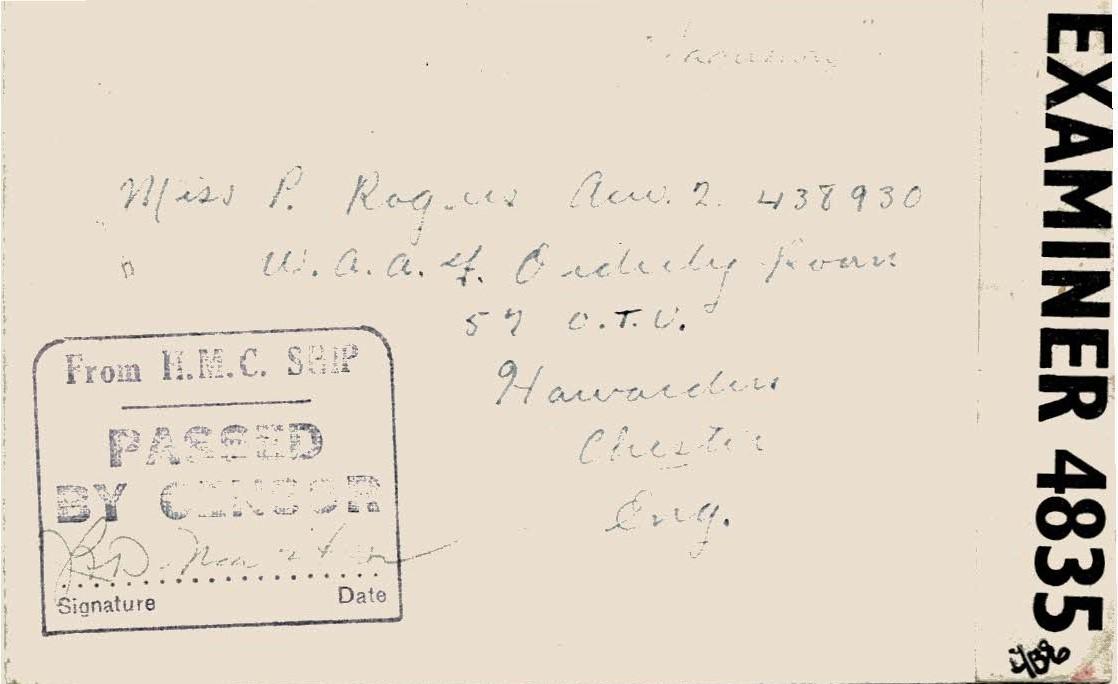 Miss P. Rogers Acw. 2. 438930
W.A.A.F. Orderly Room
57 O.T.U.
Hawarden
Chester
Eng.
From H.M.C. SHIP
PASSED
BY CENSOR
Signature Date
EXAMINER 4835